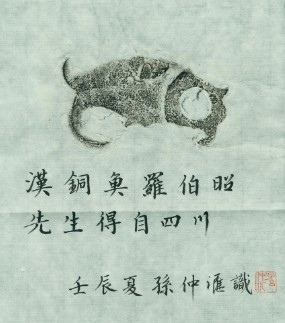 漢銅魚羅伯昭
先生得自四川
壬辰夏孫仲滙識